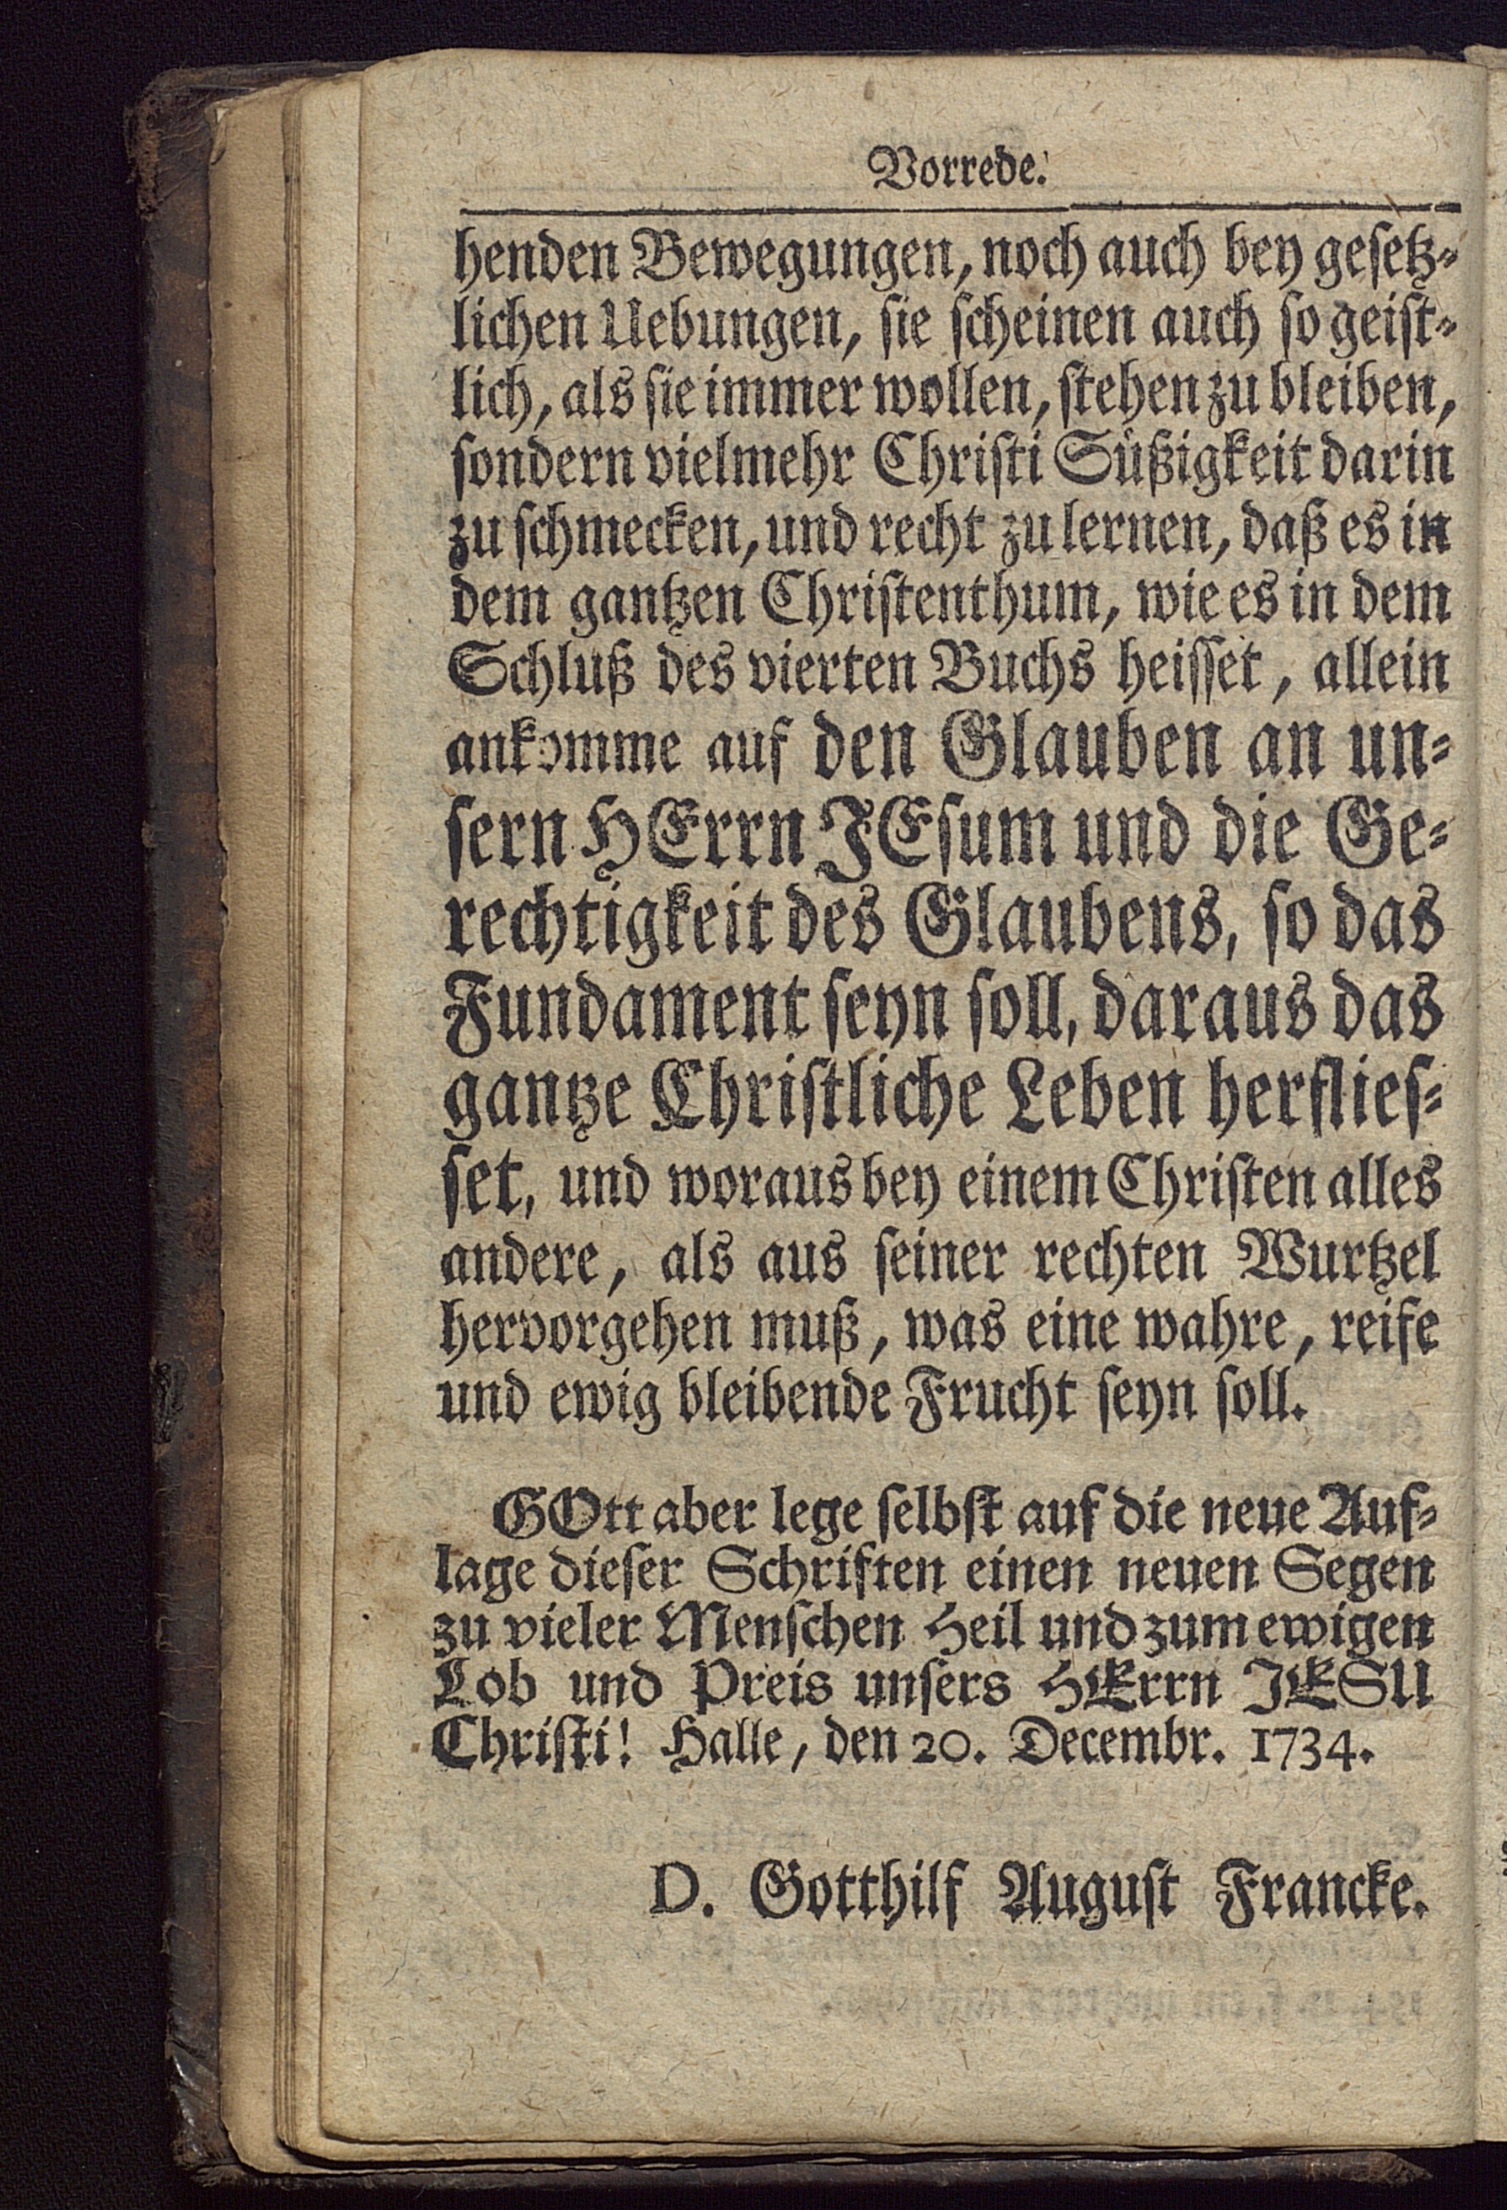 Vorrede.
henden Bewegungen, noch auch bey gesetz-
lichen Uebungen, sie scheinen auch so geist-
lich, als sie immer wollen, stehen zu bleiben,
sondern vielmehr Christi Süßigkeit darin
zu schmecken, und recht zu lernen, daß es in
dem gantzen Christenthum, wie es in dem
Schluß des vierten Buchs heisset, allein
ankomme auf den Glauben an un-
sern HErrn JEsum und die Ge-
rechtigkeit des Glaubens, so das
Fundament seyn soll, daraus das
gantze Christliche Leben herflies-
set, und woraus bey einem Christen alles
andere, als aus seiner rechten Wurtzel
hervorgehen muß, was eine wahre, reife
und ewig bleibende Frucht seyn soll.
GOtt aber lege selbst auf die neue Auf-
lage dieser Schriften einen neuen Segen
zu vieler Menschen Heil und zum ewigen
Lob und Preis unsers HErrn JESU
Christi! Halle, den 20. Decembr. 1734.
D. Gotthilf August Francke.